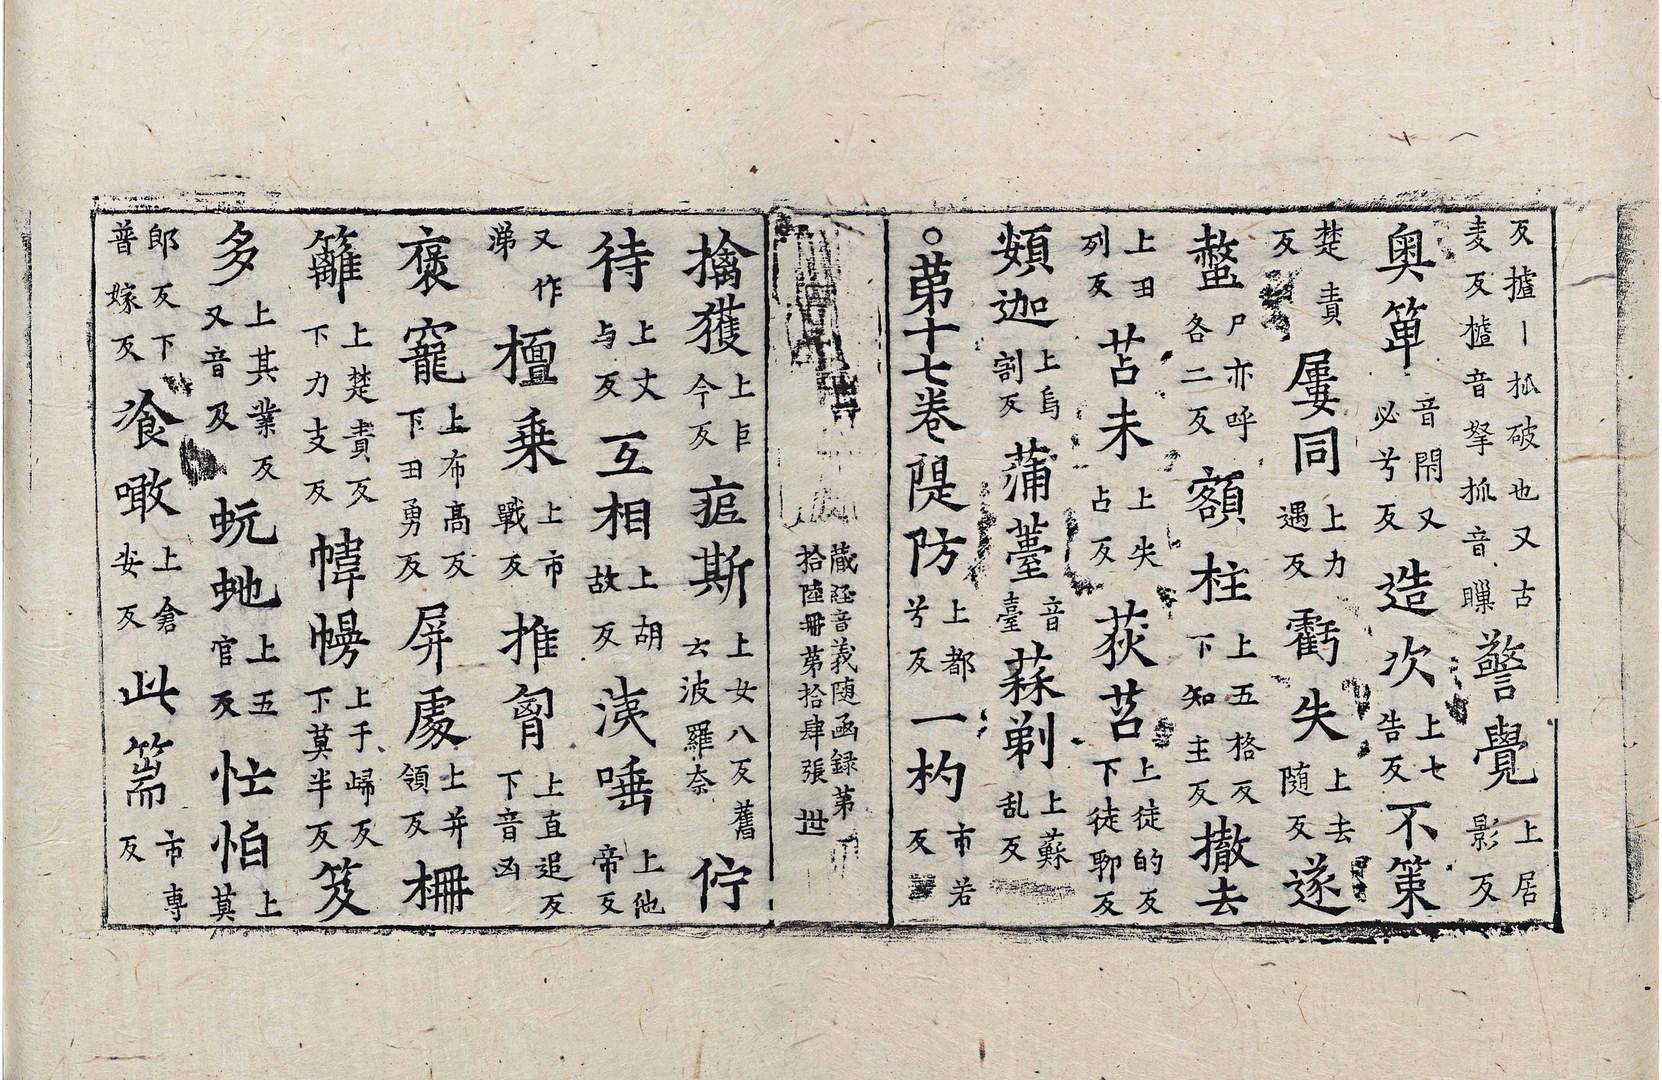 反攄丨抓破也又古麦反樝音拏抓音𤢪警覺上居影反
奥箄音閇又必兮反造次上七告反不策
楚責反屢同上力遇反虧失上去随反遂
螫尸亦呼各二反額柱上五格反下知主反撤去
上田列反苫未上失占反荻苕上徒的反下徒聊反
頞迦上烏割反蒲薹音臺蘇剃上蘇乱反
○第十七卷隄防上都兮反一杓市若反
藏経音義随函録第
拾陸冊第拾肆張世
擒獲上巨今反痆斯上女八反舊云波羅奈佇
待上丈与反互相上胡故反洟唾上他帝反
又作涕檀乗上市戰反推匈上直追反下音凶
褒寵上布高反下田勇反屏處上并領反柵
籬上楚責反下力支反幃幔上于歸反下莫半反笈
多上其業反又音及蚖虵上五官反忙怕上莫
郎反下普嫁反飡噉上倉安反此篅市専反